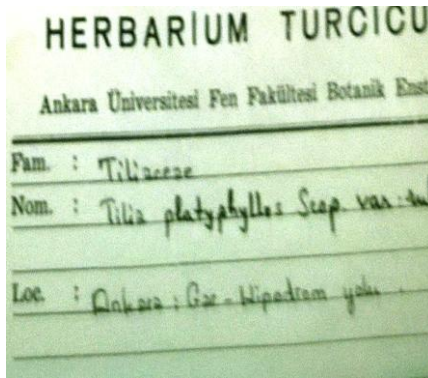 HERBARIUM TURCICU
Ankara Üniversitesi Fen Fakültesi Botanik Enst
Fam. : Tiliaceae
Nom. : Tilia platyphyllos Scop. var.
Loc. : Ankara : Gar - Hipodrom yolu.